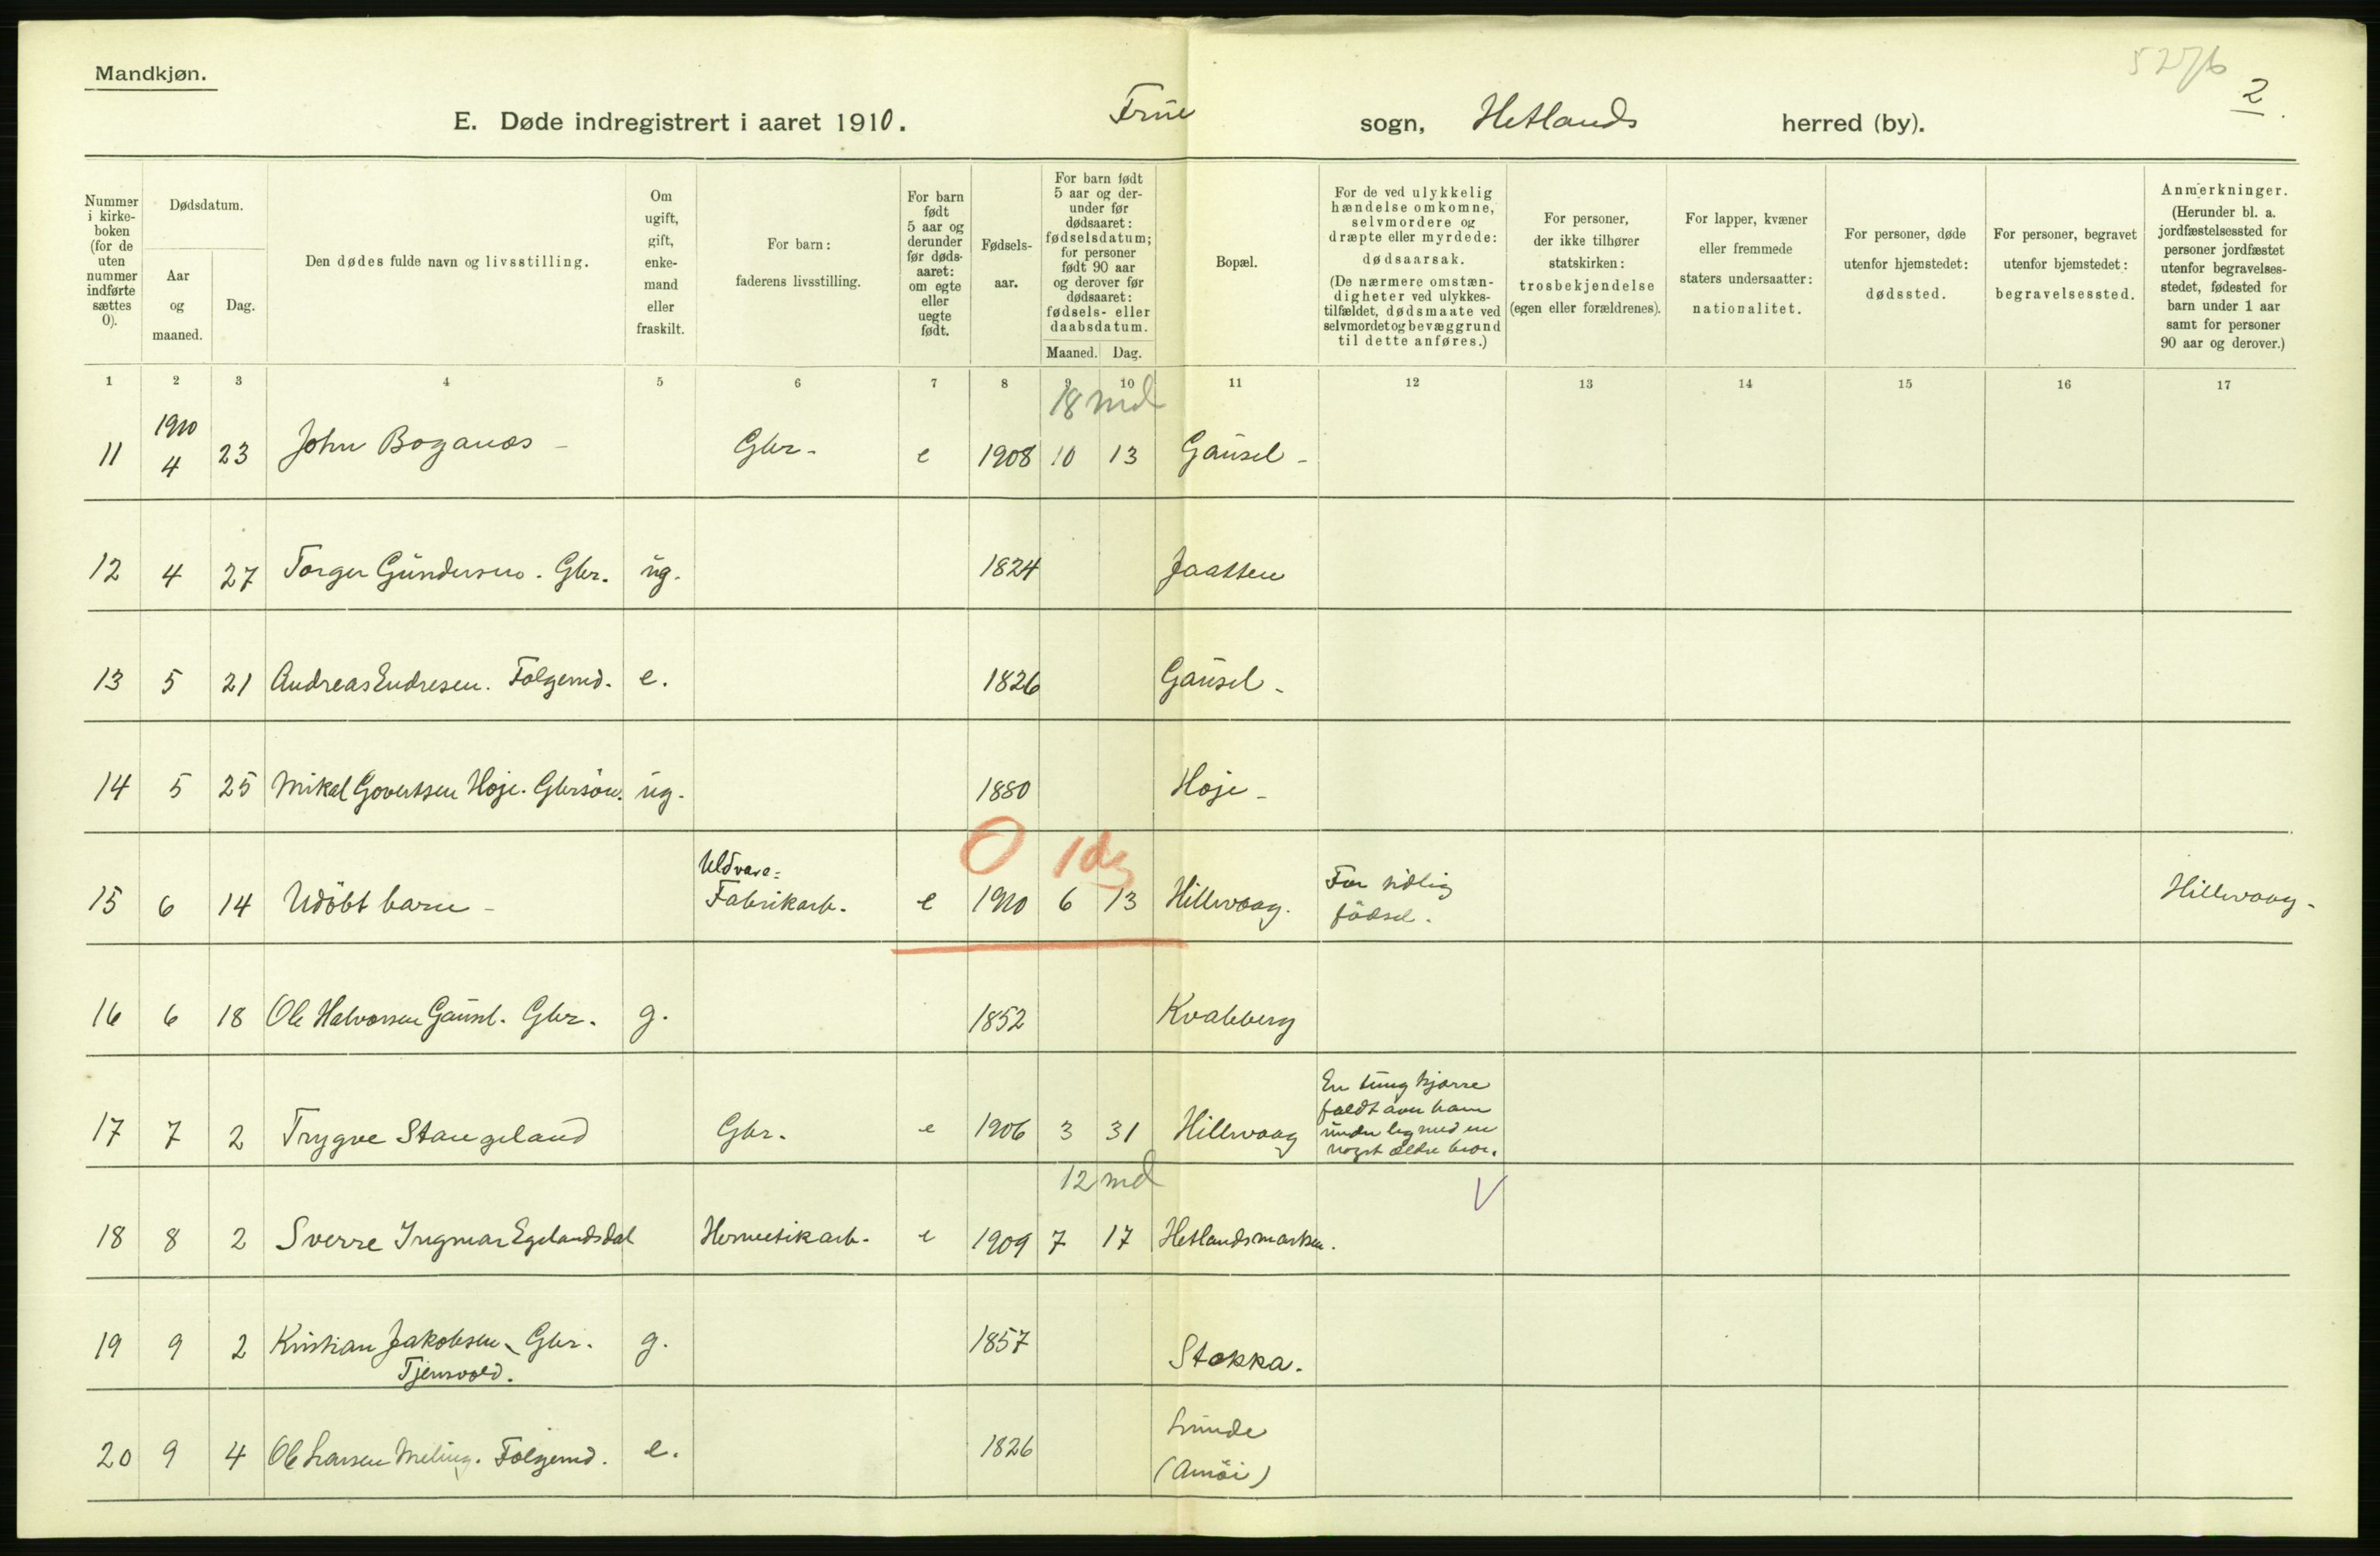 5276
2
Mandkjøn.
E. Døde indregistrert i aaret 1910. Frue sogn, Hetlands herred (by).
Nummer i kirke-boken (for de uten nummer indførte sættes 0).
Dødsdatum.
Aar og maaned.
Dag.
Den dødes fulde navn og livsstilling.
Om ugift, gift, enke-mand eller fraskilt.
For barn: faderens livsstilling.
For barn født 5 aar og derunder før døds-aaret: om egte eller uegte født.
Fødsels-aar.
For barn født 5 aar og der-under før dødsaaret: fødselsdatum; for personer født 90 aar og derover før dødsaaret: fødsels- eller daabsdatum.
Maaned. Dag.
Bopæl.
For de ved ulykkelig hændelse omkomne, selvmordere og dræpte eller myrdede: dødsaarsak. (De nærmere omstæn-digheter ved ulykkes-tilfældet, dødsmaate ved selvmordet og bevæggrund til dette anføres.)
For personer, der ikke tilhører statskirken: trosbekjendelse (egen eller forældrenes).
For lapper, kvæner eller fremmede staters undersaatter: nationalitet.
For personer, døde utenfor hjemstedet: dødssted.
For personer, begravet utenfor hjemstedet: begravelsessted.
Anmerkninger. (Herunder bl. a. jordfæstelsessted for personer jordfæstet utenfor begravelses-stedet, fødested for barn under 1 aar samt for personer 90 aar og derover.)
1 2 3 4 5 6 7 8 9 10 11 12 13 14 15 16 17
18 md
1910
11 4 23 John Boganæs - Gbr. e 1908 10 13 Gausel -
12 4 27 Torger Gundersen. Gbr. ug. 1824 Jaatten
13 5 21 Andreas Endresen. Folgemd. e. 1826 Gausel -
14 5 25 Mikal Govertsen Hoje. Gbrsøn. ug. 1880 Hoje -
0 1 dg
Uldvare=
15 6 14 Udöbt barn - Fabrikarb. e 1910 6 13 Hillevaag. For tidlig födsel. Hillevaag -
16 6 18 Ole Halvorsen Gausel. Gbr. g. 1852 Kvaleberg
17 7 2 Trygve Stangeland Gbr. e 1906 3 31 Hillevaag
En tung kjærre
faldt over ham
under leg med en
noget ældre bror.
12 md
V
18 8 2 Sverre Ingmar Egelandsdal Hermetikarb. e 1909 7 17 Hetlandsmarken.
19 9 2 Kristian Jakobsen Gbr. g. 1857 Stokka.
Tjensvold.
20 9 4 Ole Larsen Meling. Folgemd. e. 1826 Lunde
(Amöi)